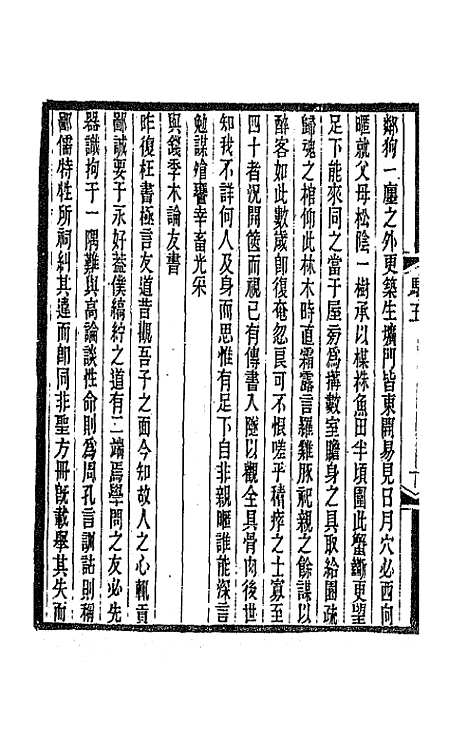 鄰狗一廛之外更築生壙門皆東開易見日月穴必西向
暱就父母松陰一樹承以楳株魚田半頃圍此蟹籪更望
足下能來同之當于屋旁為搆數室贍身之具取給園疏
歸魂之棺仰此林木時直霜露言羅雞豚祀親之餘謀以
醉客如此數歲即復奄忽良可不恨嗟乎積瘁之士寡至
四十者況開篋而視已有傳書入隧以觀全具骨肉後世
知我不詳何人及身而思惟有足下自非親暱誰能深言
勉謀飧䬸幸畜光采
與錢季木論友書
昨復枉書極言友道昔觀吾子之面今知故人之心輒貢
鄙誠要于永好蓋僕縞紵之道有二端焉學問之友必先
器識拘于一隅難與高論談性命則為周孔言訓詁則稱
鄭儒特牲所祠糾其違而即同非聖方冊既載舉其失而